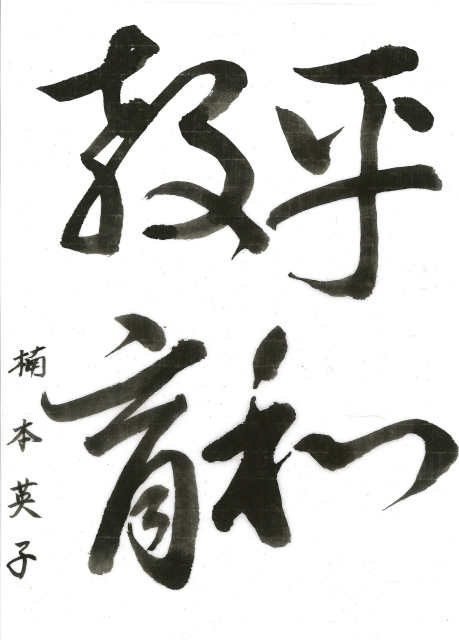 平和
教育
楠本英子